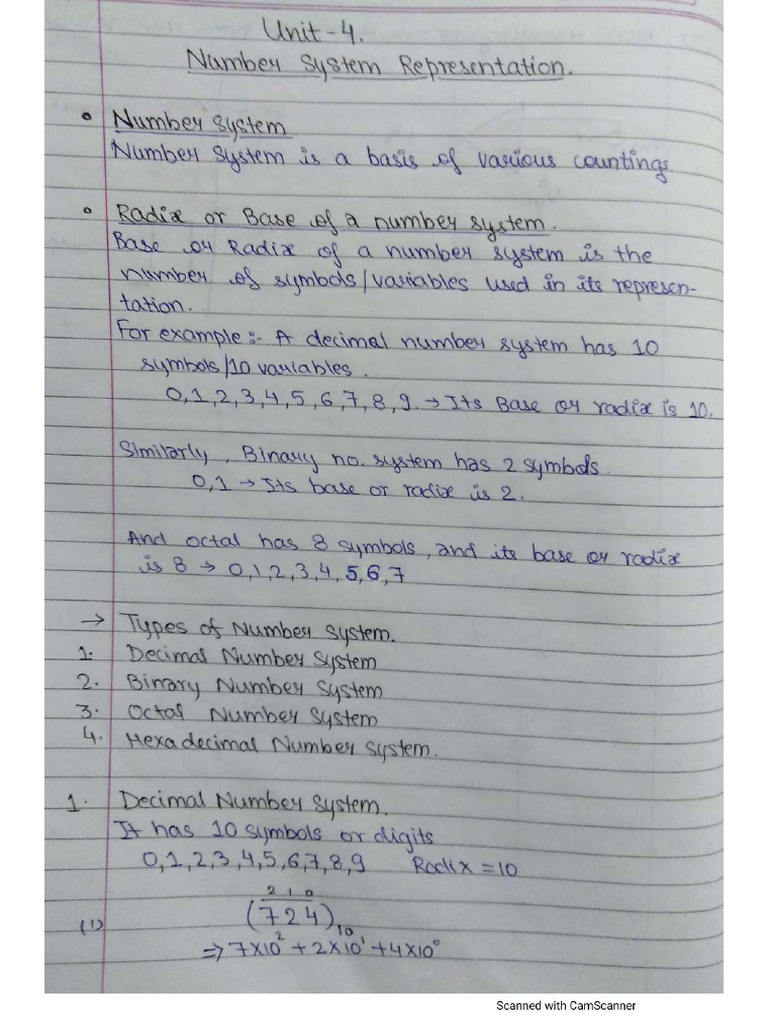 Unit-4.
Number System Representation.
Number System
Number System is a basis of various countings.
Radix or Base of a number system.
Base or Radix of a number system is the
number of symbols/variables used in its represen-
tation.
For example:- A decimal number system has 10
symbols/10 variables.
0,1,2,3,4,5,6,7,8,9. → Its Base or radix is 10.
Similarly, Binary no. system has 2 symbols.
0,1 → Its base or radix is 2.
And octal has 8 symbols, and its base or radix
is 8 → 0,1,2,3,4,5,6,7
→ Types of Number System.
1. Decimal Number System
2. Binary Number System
3. Octal Number System
4. Hexadecimal Number System.
1. Decimal Number System.
It has 10 symbols or digits
0,1,2,3,4,5,6,7,8,9 Radix = 10
2 1 0
(1) (724)₁₀
⇒ 7×10² + 2×10¹ + 4×10⁰
Scanned with CamScanner